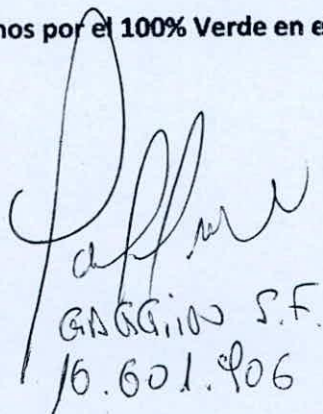 nos por el 100% Verde en e
GAGGiON S.F.
16.601.906